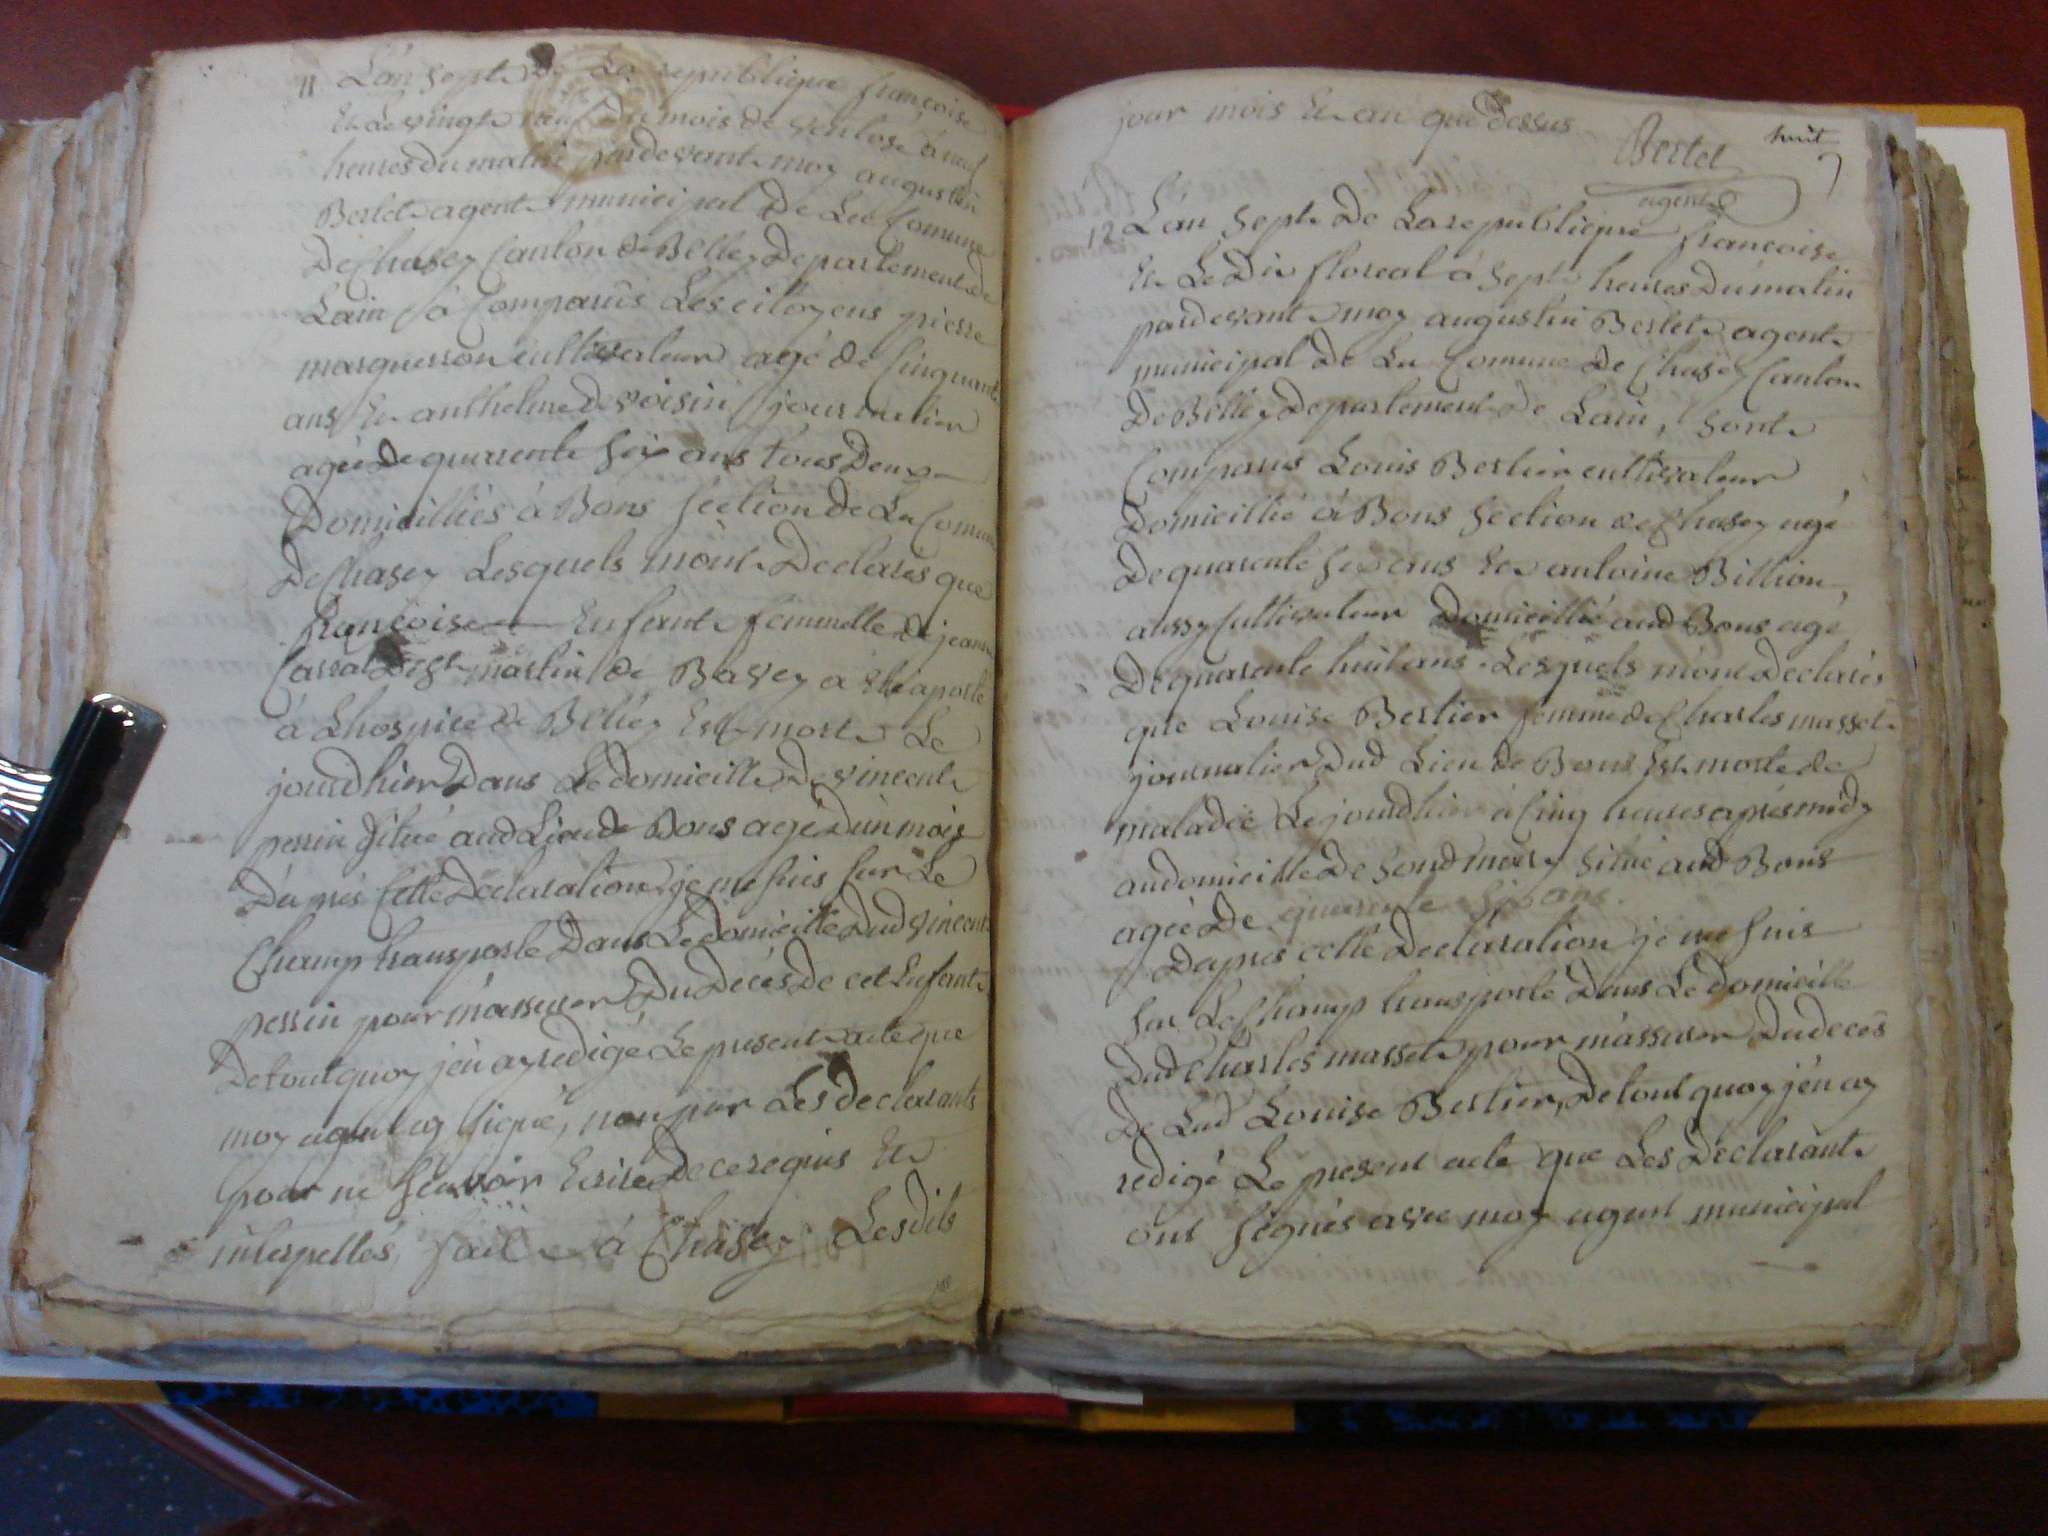 11 L'an sept de La republique françoise
Et Le vingt neuf du mois de ventose à neuf
heures du matin pardevant moy augustin
Bertet agent municipal De La Comune
De Chasey Canton de Belley Departement de
Lain à Comparüs Les citoyens pierre
marquesson cultivateur agé de Cinquante
ans Et anthelme Devoisin journalier
agée De quarente six ans tous Deux
Domicilliés à Bons section de La Comune
De Chasey Lesquels m'ont Declarés que
françoise Enfant femmelle de jeanne
Carral martin de Bavey a été aporté
à Lhospice de Belley Est morte Le
jourdhier Dans Le domicille De vincent
perrin situé aud Lieu de Bons agé D'un mois
D'aprés Cette Declaration je me suis sur Le
Champ transporté Dans Le domicille Dud vincent
perrin pour m'assurer Du Décés De cet Enfant
De tout quoy j'en ay redigé Le present acte que
moy agent ay signé, non par Les declarants
pour ne sçavoir Ecrire De ce requis Et
interpellés, fait à Chasey Lesdits
jour mois Et an que Dessus
Bertet
agent
huit
12 L'an sept De La republique françoise
Et Le Dix floreal à sept heures Du matin
pardevant moy augustin Bertet agent
municipal De La Comune De Chasey Canton
De Belley Departement De Lain, sont
Comparus Louis Bertier cultivateur
Domicillié à Bons section de Chasey agé
De quarente six ans Et antoine Billion
aussy Cultivateur Domicillié aud Bons agé
De quarente huit ans. Lesquels m'ont Declarés
que Louise Bertier femme de Charles masset
journalier Dud Lieu de Bons Est morte de
maladie Le jourdhier à Cinq heures aprés midy
au domicille De sond mary situé aud Bons
agée De quarente six ans.
Dapres cette Declaration je me suis
sur Le Champ transporté Dans Le domicille
Dud Charles masset pour m'assurer Du deces
De Lad Louise Bertier, De tout quoy j'en ay
redigé Le present acte que Les Declarant
ont signés avec moy agent municipal